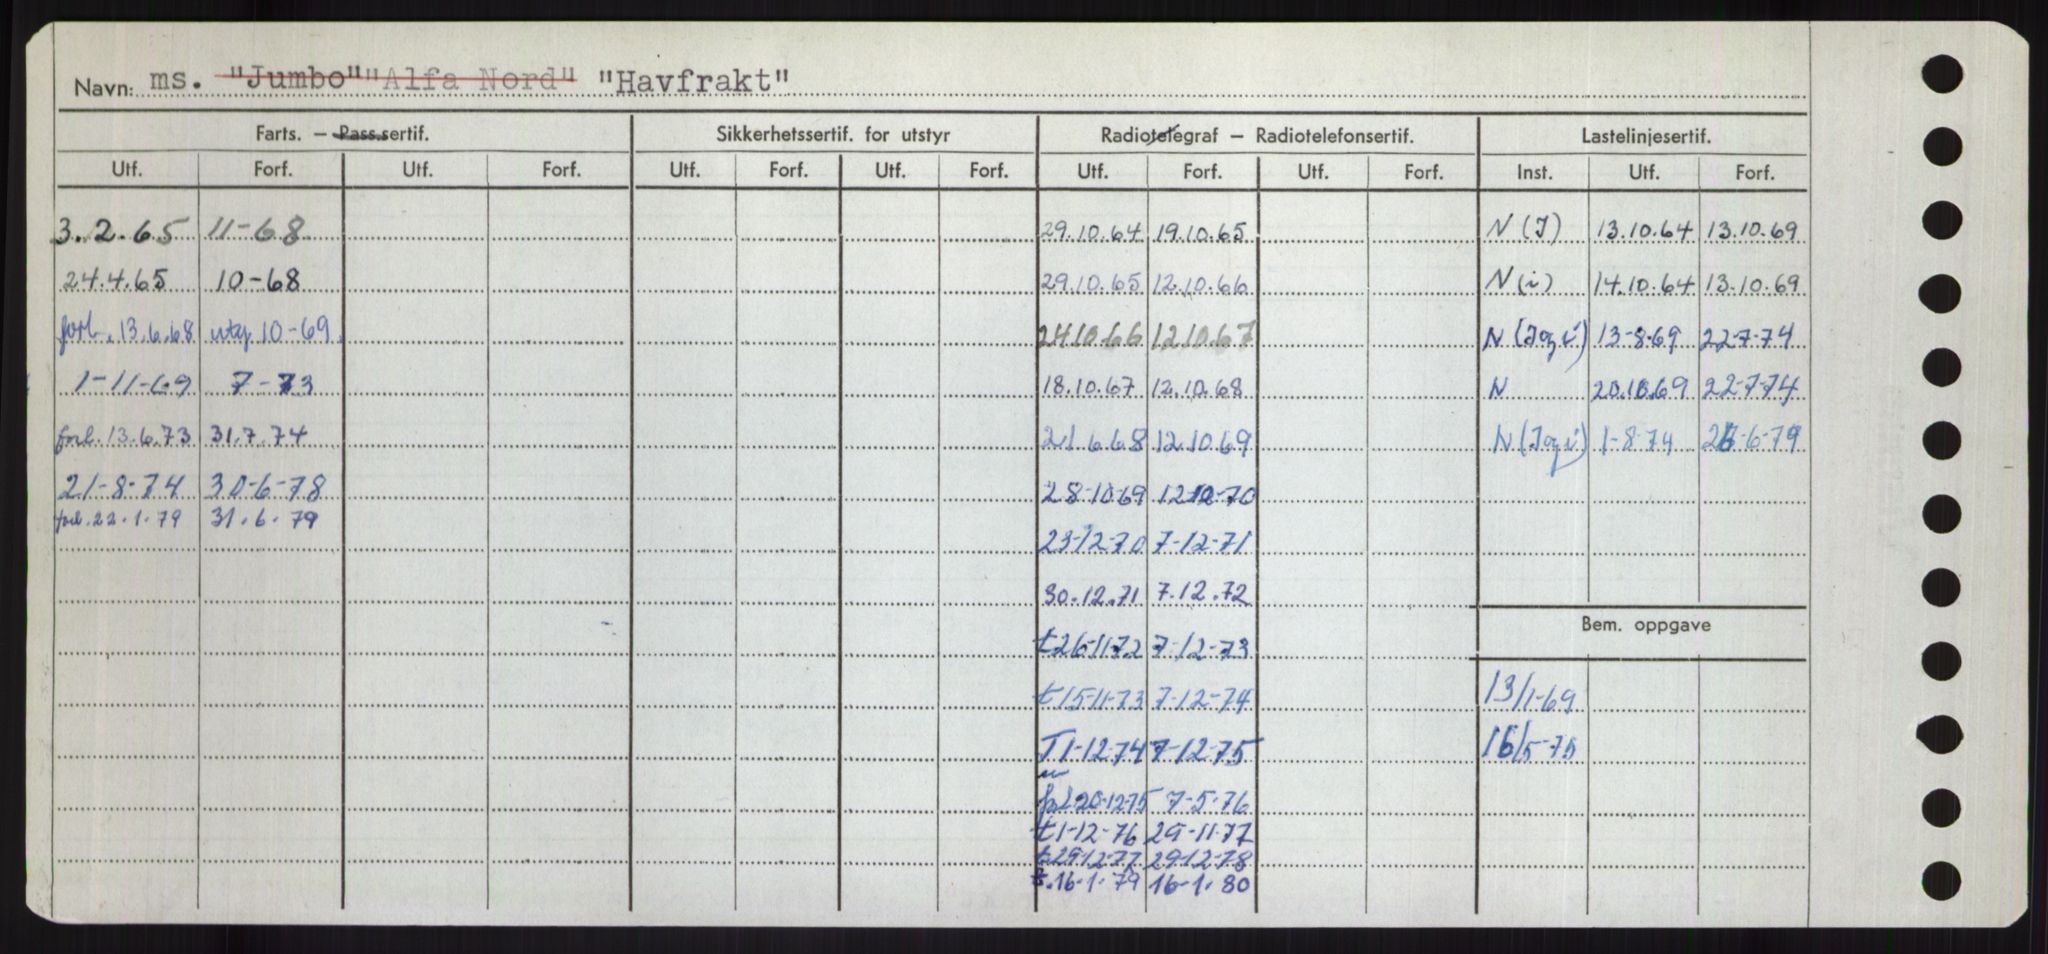 Navn: ms. "Jumbo" "Alfa Nord" "Havfrakt"
Farts. — Pass.sertif. Sikkerhetssertif. for utstyr Radiotelegraf — Radiotelefonsertif. Lastelinjesertif.
Utf. Forf. Utf. Forf. Utf. Forf. Utf. Forf. Utf. Forf. Utf. Forf. Inst. Utf. Forf.
3.2.65 11-68 29.10.64 19.10.65 N (I) 13.10.64 13.10.69
24.4.65 10-68 29.10.65 12.10.66 N (i) 14.10.64 13.10.69
forl. 13.6.68 utg 10-69. 24.10.66 12.10.67 N (I og i) 13-8-69 22-7-74
1-11-69 7-73 18.10.67 12.10.68 N 20.10.69 22-7-74
forl. 13.6.73 31.7.74 21 6 68 12 10 69 N (I og i) 1-8-74 26-6-79
21-8-74 30-6-78 28-10-69 12-12-70
forl. 22.1.79 31.6.79
23-12-70 7-12-71
30.12.71 7.12.72
Bem. oppgave
t 26-11-72 7-12-73
t 15-11-73 7-12-74 13/1-69
T 1-12-74 7-12-75 16/5-75
forl 20-12-75 7-5-76
t 1-12-76 29-11-77
t 29-12-77 29-12-78
t. 16-1-79 16-1-80